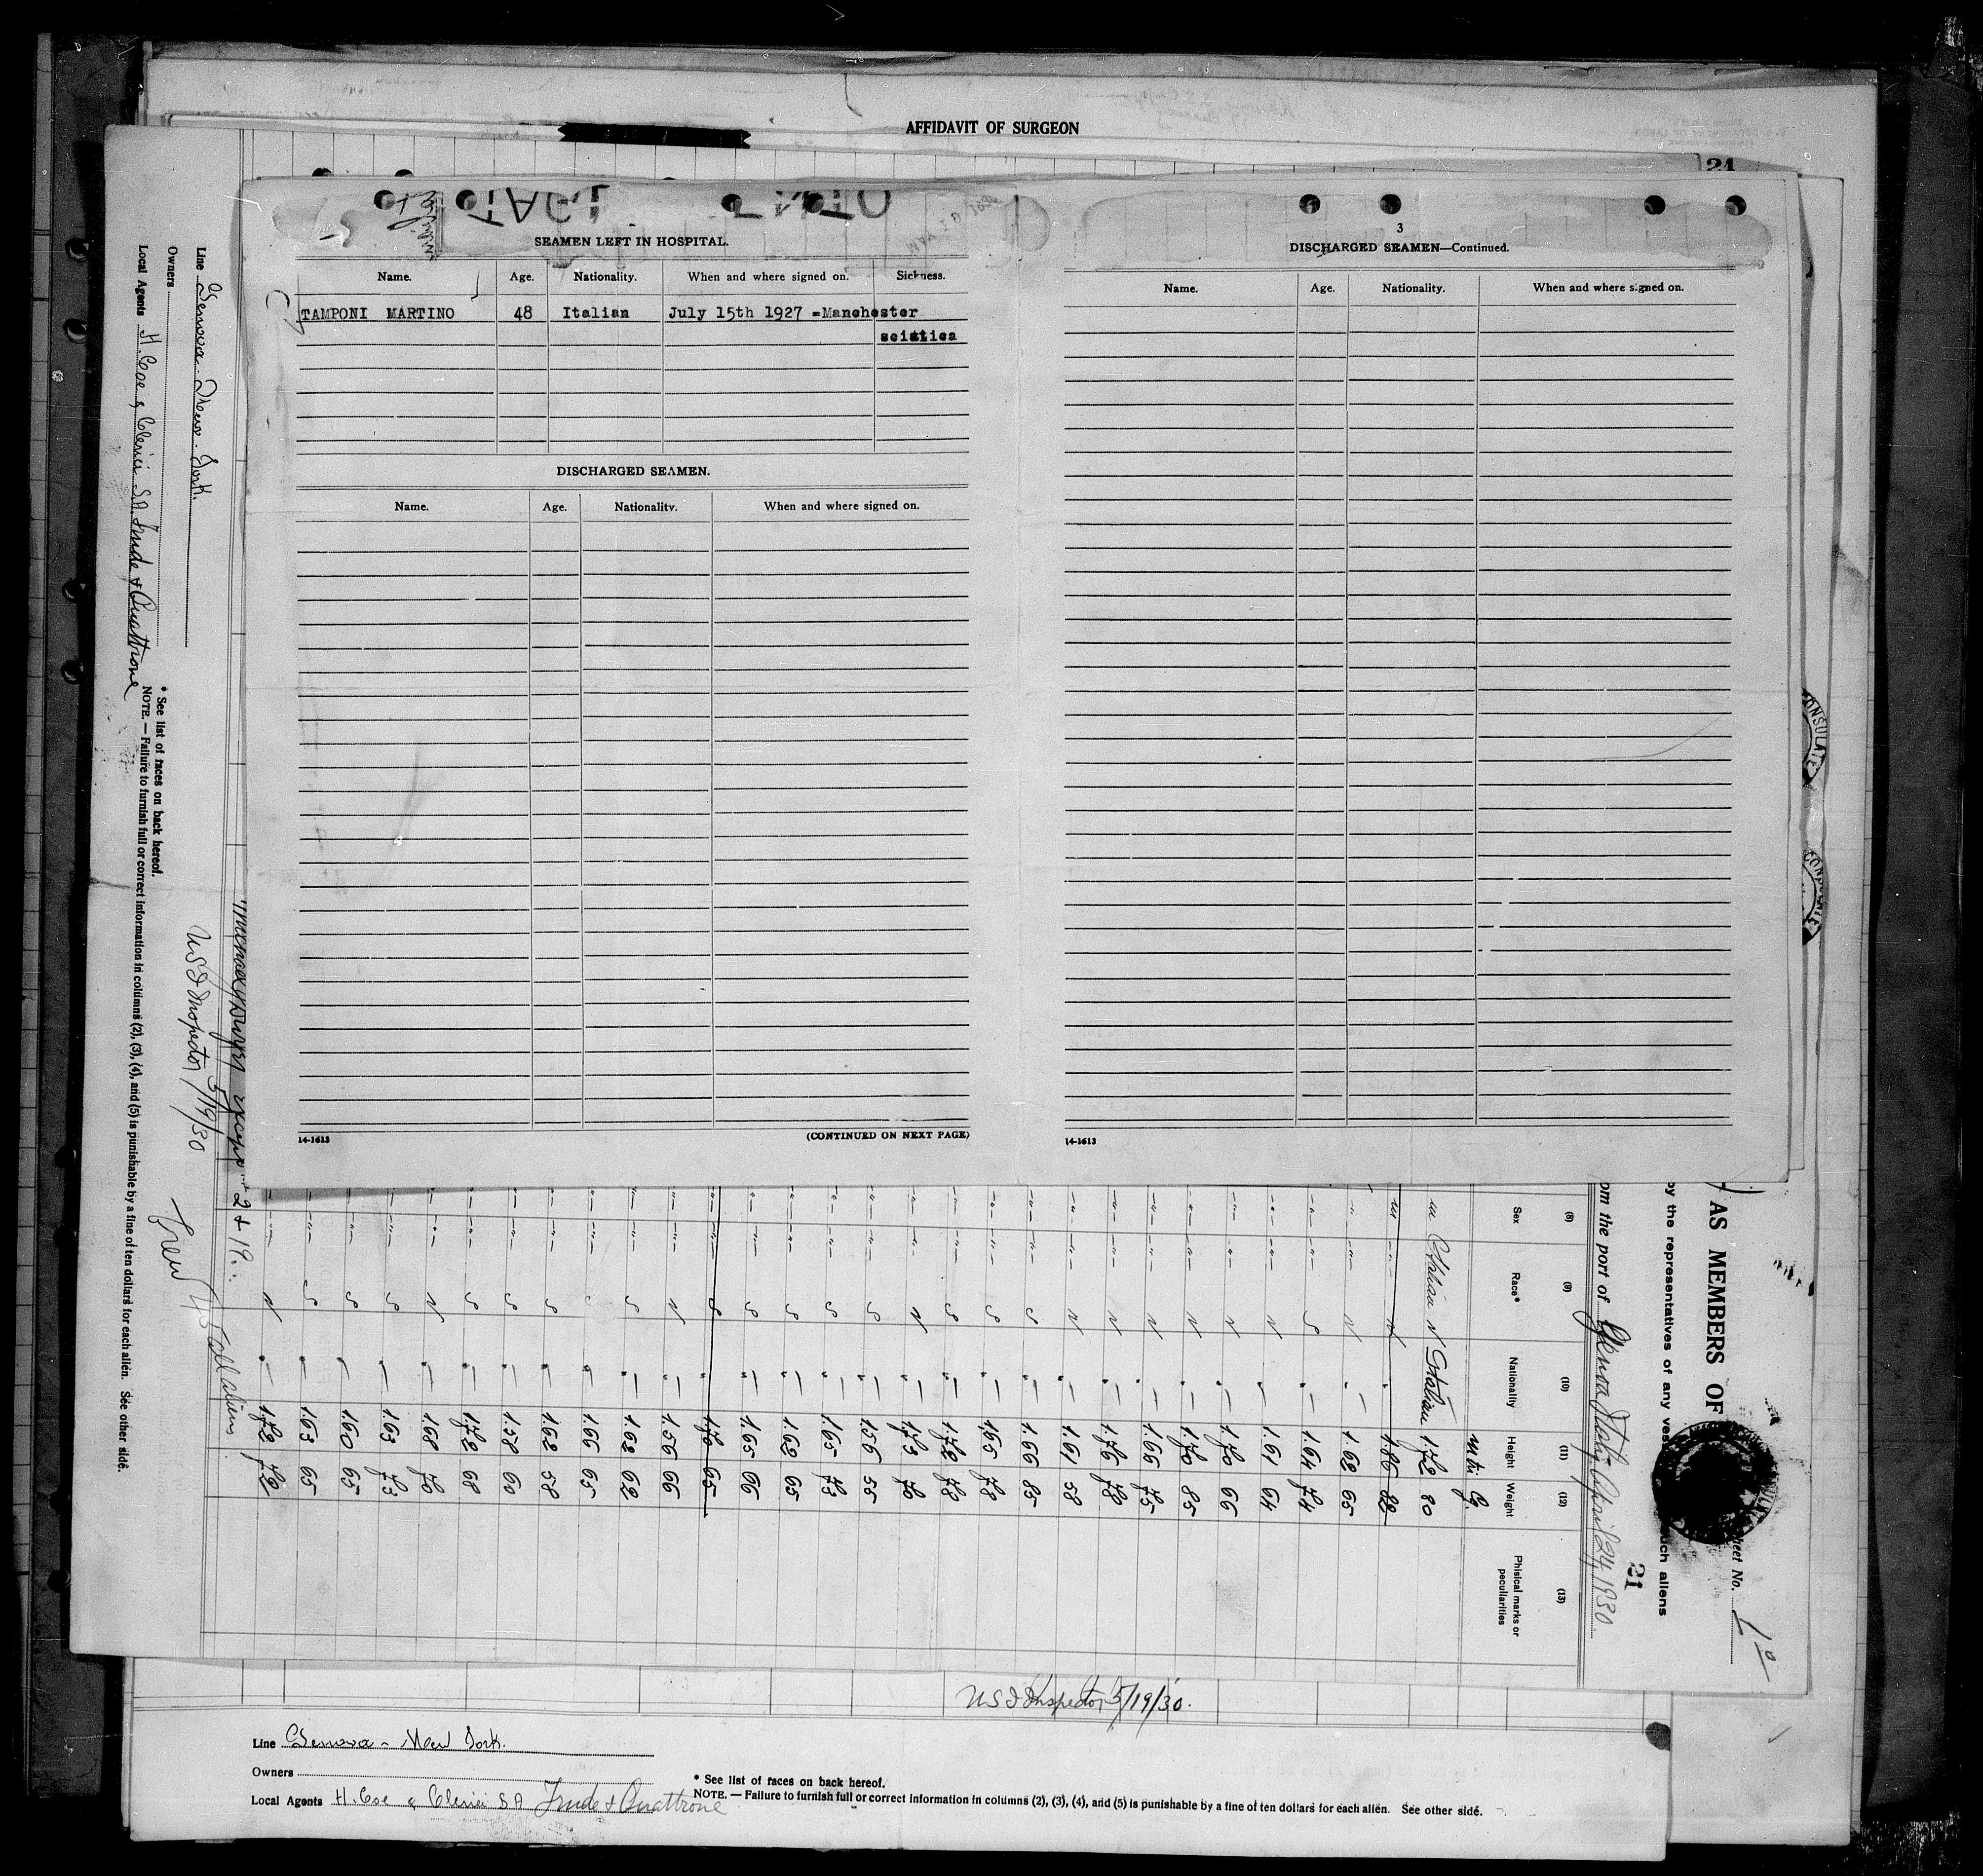 AFFIDAVIT OF SURGEON
21
SEAMEN LEFT IN HOSPITAL.
Name. Age. Nationality. When and where signed on. Sickness.
TAMPONI MARTINO 48 Italian July 15th 1927 =Manchester
sciatica
DISCHARGED SEAMEN.
Name. Age. Nationality. When and where signed on.
14-1613 (CONTINUED ON NEXT PAGE)
3
DISCHARGED SEAMEN—Continued.
Name. Age. Nationality. When and where signed on.
14-1613
CONSULATE
Line Genova - New York.
Owners
Local Agents H. Coe & Clerici S.A. Trude & Quattrone
* See list of races on back hereof.
NOTE. — Failure to furnish full or correct information in columns (2), (3), (4), and (5) is punishable by a fine of ten dollars for each alien. See other side.
US I Inspector 5/19/30
2 + 19.
Crew 45 all aliens
) AS MEMBERS OF
Sheet No. 1º
by the representatives of any ves such aliens
21
om the port of Genova Italy April 24, 1930
(8) (9) (10) (11) (12) (13)
Sex Race* Nationally Height Weight Phisical marks or peculiarities
mtri Kg.
m Italian N Italian 1.72 80
m -"- N " 1.86 82
-"- -"- N " - 1.62 65
-"- -"- S " - 1.64 74
-"- -"- N - 1.61 64
-"- -"- N " - 1.70 66
-"- -"- N " - 1.70 85
-"- -"- N " - 1.66 75
-"- -"- N " - 1.76 78
-"- -"- N " - 1.61 58
-"- -"- S " - 1.66 85
-"- -"- S " - 1.65 78
-"- -"- S " - 1.72 78
-"- -"- N " - 1.73 70
-"- -"- S " - 1.56 55
-"- -"- S " - 1.65 73
-"- -"- S " - 1.62 65
-"- -"- S " - 1.65 66
-"- -"- S " 1.70 65
-"- -"- N " - 1.56 66
-"- -"- S " - 1.62 62
-"- -"- " - 1.66 65
-"- -"- S " - 1.62 58
-"- -"- S " - 1.58 60
-"- -"- S " - 1.72 68
-"- -"- N " - 1.68 70
-"- -"- S " - 1.63 73
-"- -"- S - 1.60 65
-"- -"- S " - 1.63 65
-"- N " - 1.72 72
US I Inspector 5/19/30.
Line Genova - New York.
Owners
Local Agents H. Coe & Clerici S.A. Trude & Quattrone
* See list of races on back hereof.
NOTE. — Failure to furnish full or correct information in columns (2), (3), (4), and (5) is punishable by a fine of ten dollars for each alien. See other side.